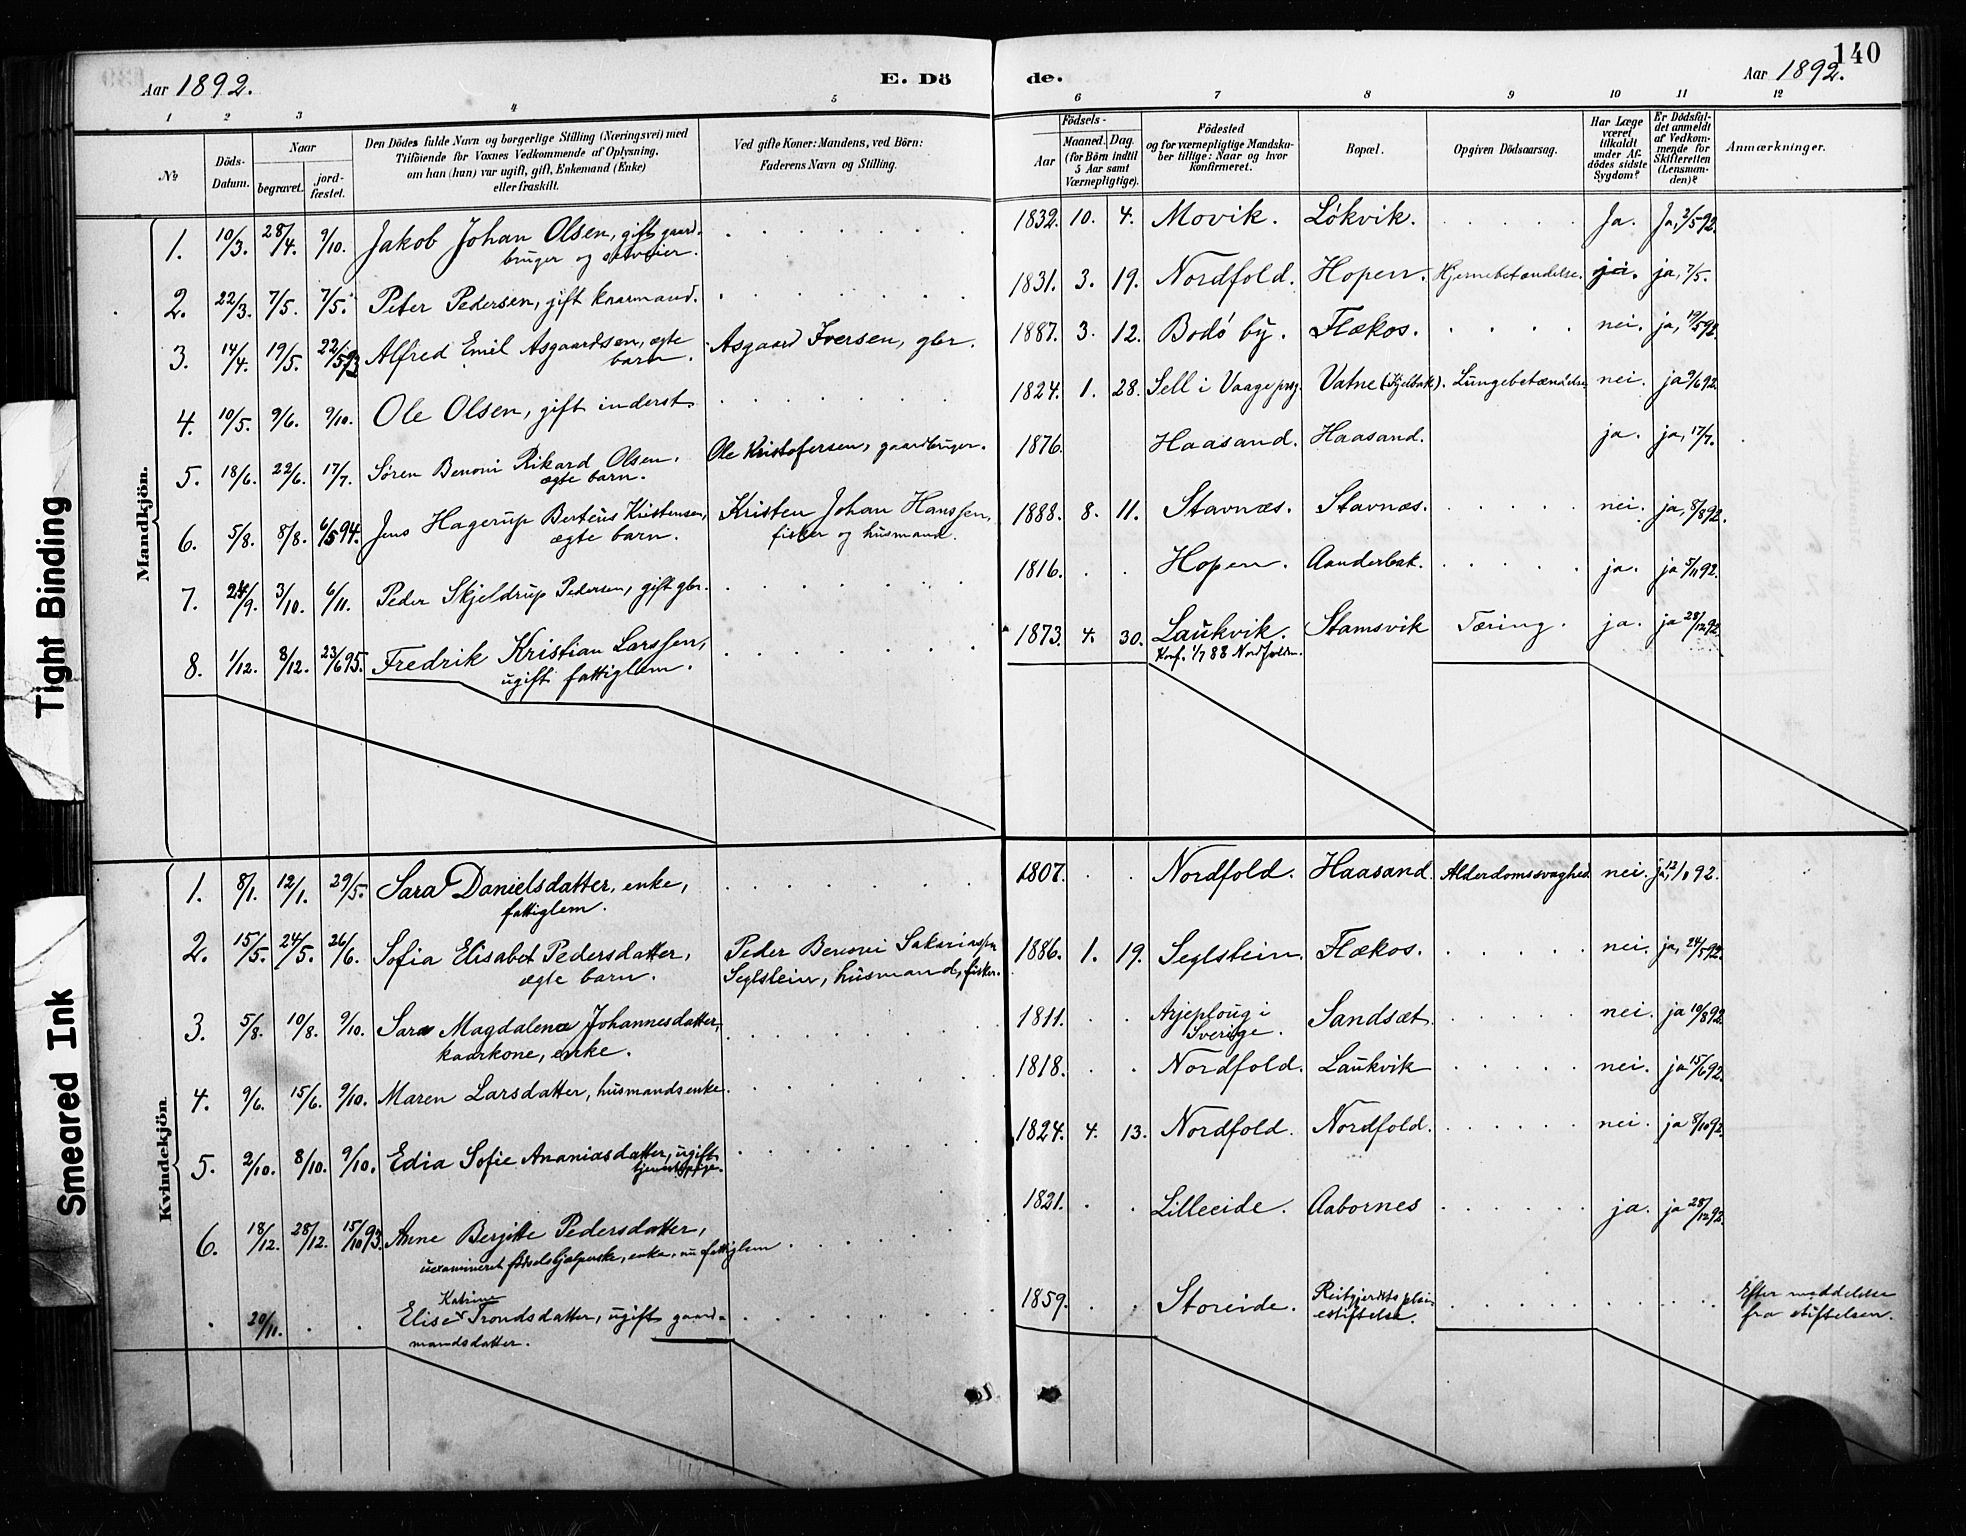 140
Aar 1892.
E. Dö
de.
Aar 1892.
1 2 3 4 5 6 7 8 9 10 11 12
No
Döds-Datum.
Naar
begravet.
jord-fæstet.
Den Dödes fulde Navn og borgerlige Stilling (Næringsvei) med
Tilföiende for Voxnes Vedkommende af Oplysning,
om han (hun) var ugift, gift, Enkemand (Enke)
eller fraskilt.
Ved gifte Koner: Mandens, ved Börn:
Faderens Navn og Stilling.
Födsels-
Aar
Maaned. Dag.
(for Börn indtil
5 Aar samt
Værnepligtige).
Födested
og for værnepligtige Mandska-
ber tillige: Naar og hvor
konfirmeret.
Bopæl.
Opgiven Dödsaarsag.
Har Læge
været
tilkaldt
under Af-
dödes sidste
Sygdom?
Er Dödsfal-
det anmeldt
af Vedkom-
mende for
Skifteretten
(Lensman-
den)?
Anmærkninger.
Mandkjön.
1. 10/3. 28/4. 9/10. Jakob Johan Olsen, gift gaard-
bruger og selveier. 1832. 10. 4. Movik. Lökvik. Ja. Ja, 2/5 92.
2. 22/3. 7/5. 7/5. Peter Pedersen, gift kaarmand. 1831. 3. 19. Nordfold. Hopen. Hjernebetændelse. ja, 7/5.
3. 14/4. 19/5. 22/5 93 Alfred Emil Asgaardsen, ægte
barn. Asgaard Iversen, gbr. 1887. 3. 12. Bodö by. Flækos. nei. ja, 19/5 92.
4. 10/5. 9/6. 9/10. Ole Olsen, gift inderst. 1824. 1. 28. Sell i Vaage prg. Vatne (Fjelbak). Lungebetændelse. nei. ja 9/6 92.
5. 18/6. 22/6. 17/7. Sören Benoni Rikard Olsen,
ægte barn. Ole Kristofersen, gaardbruger. 1876. Haasand. Haasand. ja. ja, 17/7.
6. 5/8. 8/8. 6/5 94. Jens Hagerup Berteus Kristensen,
ægte barn. Kristen Johan Hanssen,
fisker og husmand. 1888. 8. 11. Stavnæs. Stavnæs. nei. ja, 8/8 92.
7. 24/9. 3/10. 6/11. Peder Skjeldrup Pedersen, gift gbr. 1816. Hopen. Aanderbak. ja. ja 5/11 92.
8. 1/12. 8/12. 23/6 95. Fredrik Kristian Larssen,
ugift fattiglem. 1873. 4. 30. Laukvik. Stamsvik Tæring. ja. ja 28/12 92.
Konf. 1/7 88 Nordfolden.
Kvindekjön
1. 8/1. 12/1. 29/5. Sara Danielsdatter, enke,
fattiglem. 1807. Nordfold. Haasand. Alderdomssvaghed. nei. ja, 12/1 92.
2. 15/5. 24/5. 26/6. Sofia Elisabet Pedersdatter,
ægte barn. Peder Benoni Sakariassen
Seglstein, husmand, fisker. 1886. 1. 19. Seglstein. Flækos. nei. ja, 24/5 92.
3. 5/8. 10/8. 9/10. Sara Magdalena Johannesdatter,
kaarkone, enke. 1811. Arjeploug i
Sverige. Sandsæt. nei. ja 10/8 92.
4. 9/6. 15/6. 9/10. Maren Larsdatter, husmandsenke. 1818. Nordfold. Laukvik nei. ja 15/6 92.
5. 2/10. 8/10. 9/10. Edia Sofie Ananiasdatter, ugift
tjenestepige. 1824. 4. 13. Nordfold. Nordfold. nei. ja 8/10 92.
6. 18/12. 28/12. 15/10 93. Anne Bergitte Pedersdatter,
uexamineret födselshjælperske, enke, nu fattiglem 1821. Lilleeide. Aabornes ja. ja 28/12 92.
20/11. Elise Katrine Trondsdatter, ugift gaard-
mandsdatter. 1859. Storeide. Reitgjerdets plei-
estiftelse. Efter meddelelse
fra stiftelsen.
Tight Binding
Smeared Ink